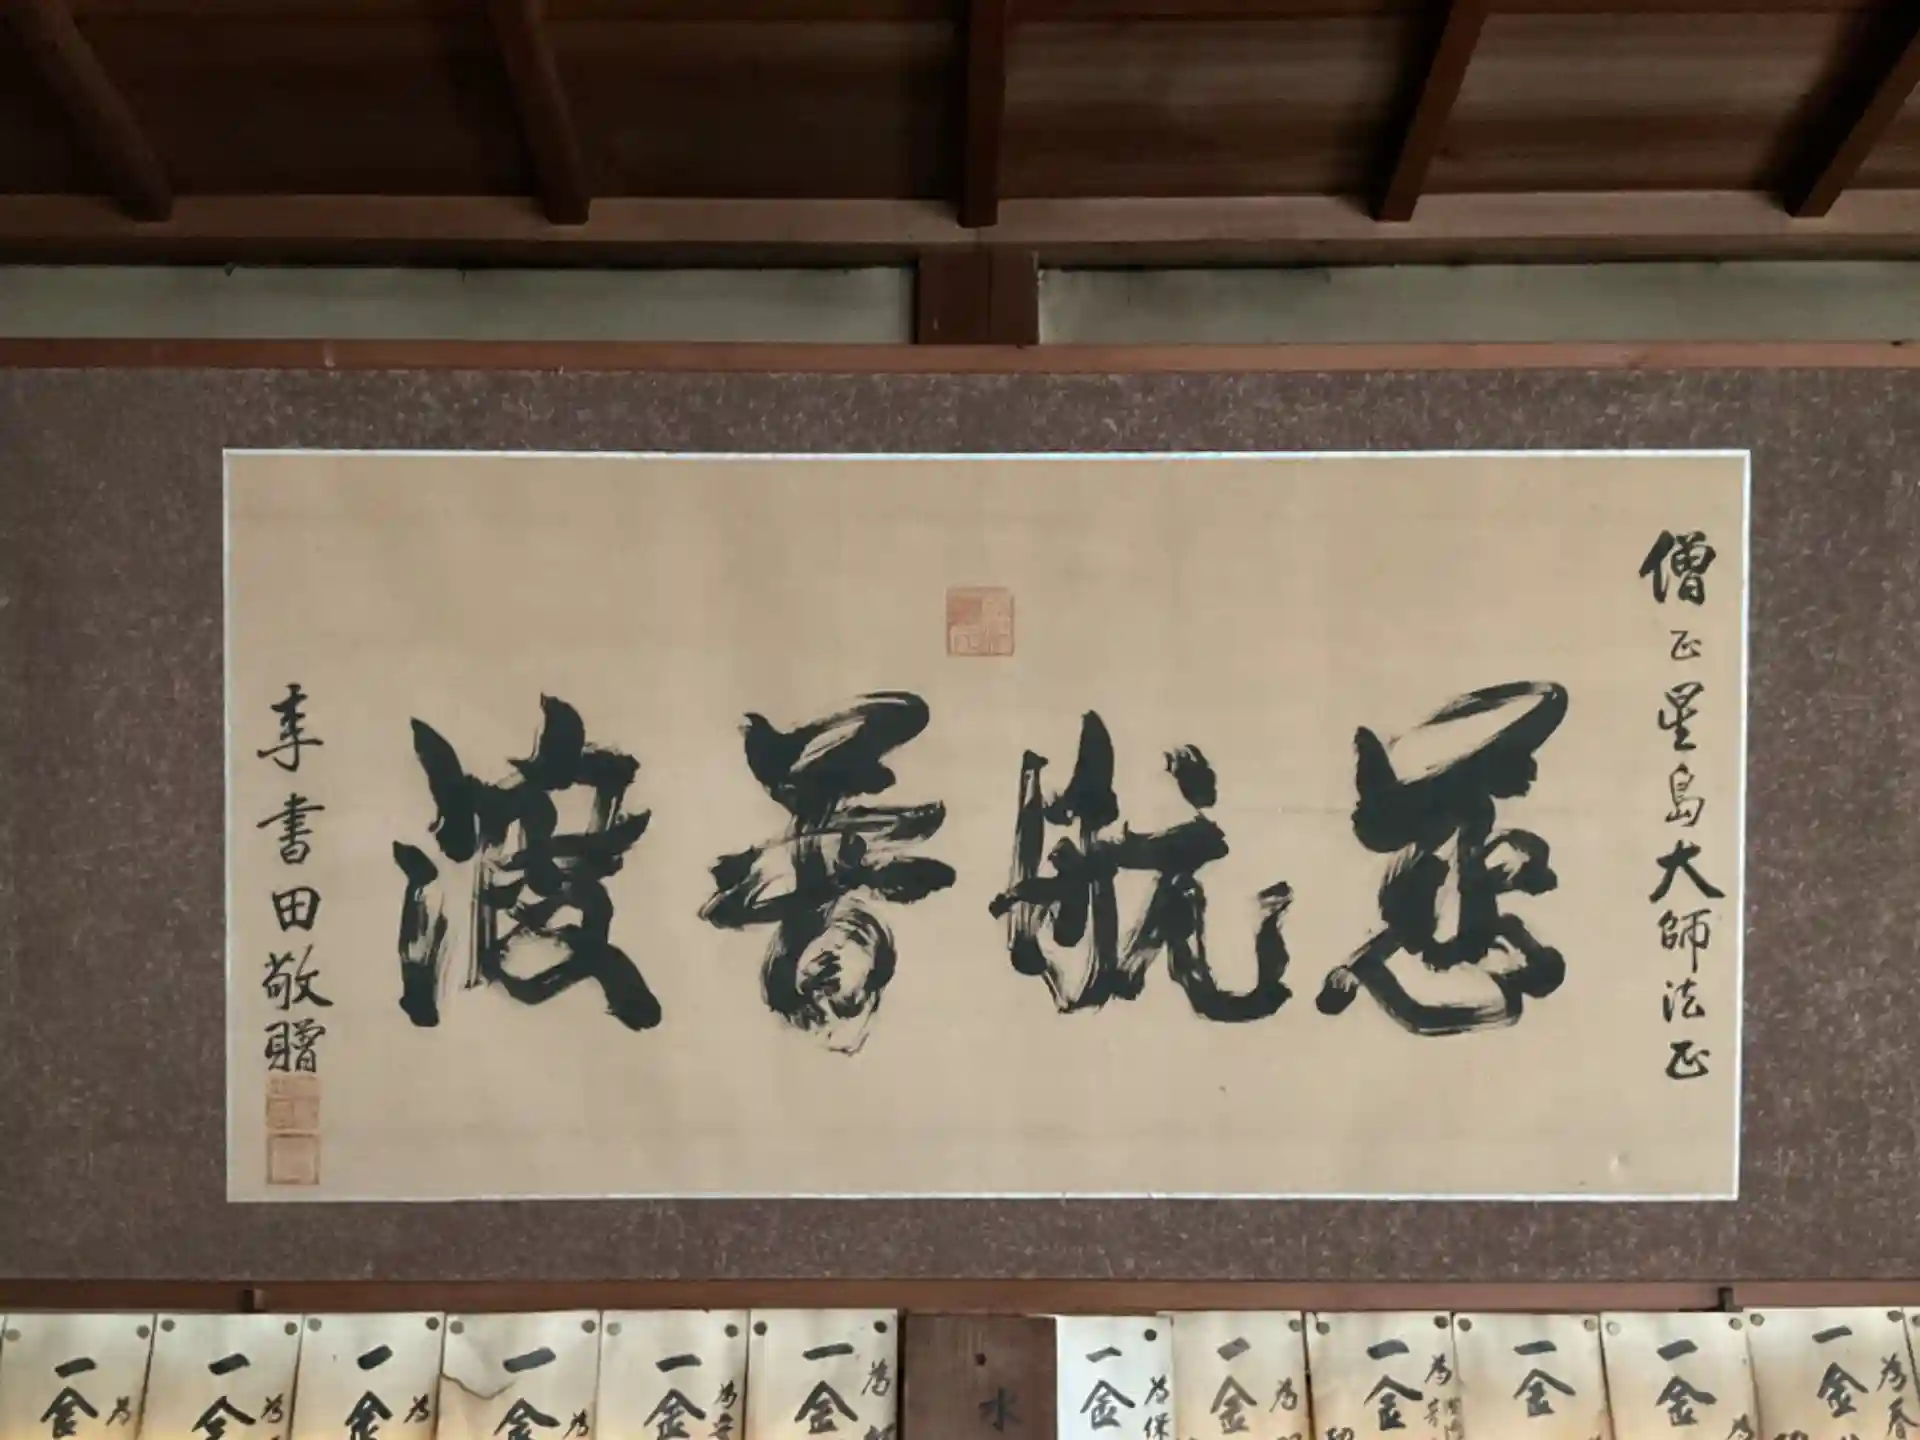 僧正星島大師法正
慈航普渡
李書田敬贈
一金 為
一金 為
一金 為
一金 為
一金 為
一金 為
水
一金 為
一金 為
一金 為
一金
一金 為
一金 為